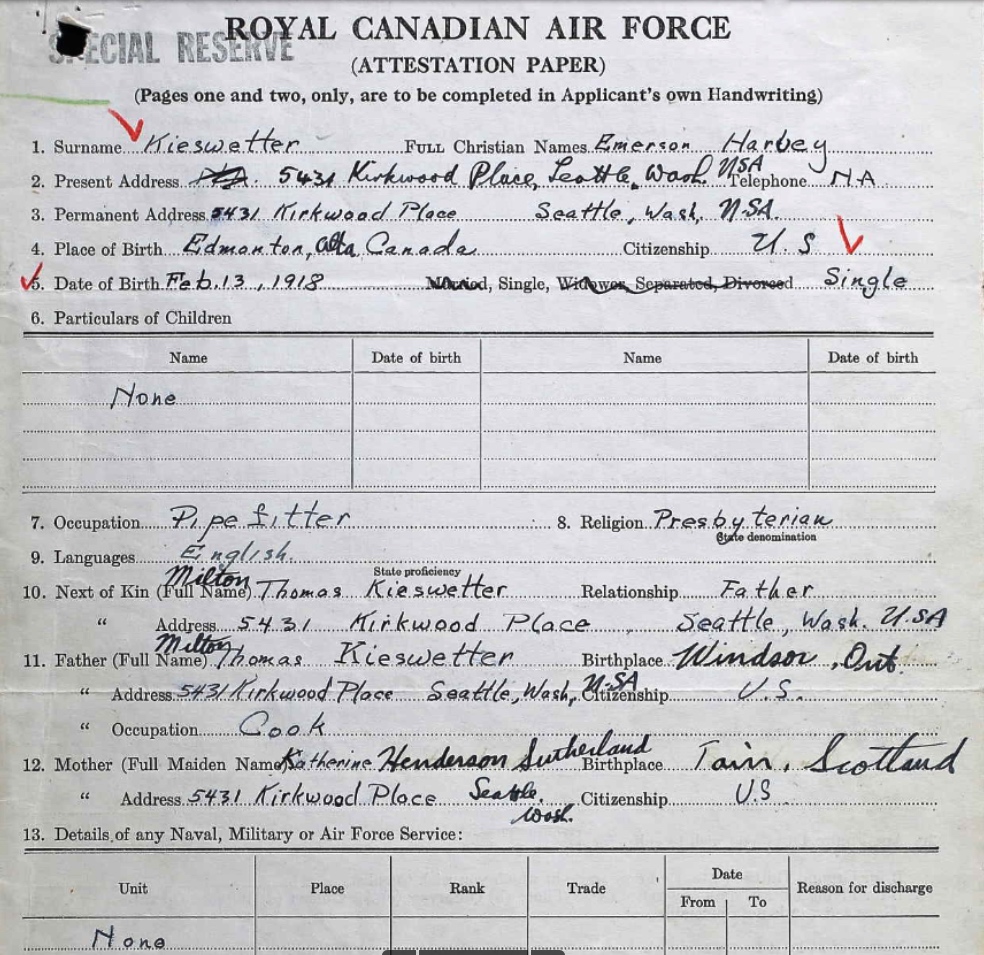 SPECIAL RESERVE
ROYAL CANADIAN AIR FORCE
(ATTESTATION PAPER)
(Pages one and two, only, are to be completed in Applicant's own Handwriting)
1. Surname Kieswetter Full Christian Names Emerson Harvey
2. Present Address 5431 Kirkwood Place, Seattle, Wash USA Telephone NA
3. Permanent Address 5431 Kirkwood Place Seattle, Wash, USA.
4. Place of Birth Edmonton, Alta, Canada Citizenship U.S
5. Date of Birth Feb. 13, 1918 Married, Single, Widower, Separated, Divorced Single
6. Particulars of Children
Name Date of birth Name Date of birth
None
7. Occupation Pipe fitter 8. Religion Presbyterian
State denomination
9. Languages English.
State proficiency
10. Next of Kin (Full Name) Milton Thomas Kieswetter Relationship Father
" Address 5431 Kirkwood Place Seattle, Wash. USA
11. Father (Full Name) Milton Thomas Kieswetter Birthplace Windsor, Ont.
" Address 5431 Kirkwood Place Seattle, Wash, USA Citizenship U.S.
" Occupation Cook
12. Mother (Full Maiden Name) Katherine Henderson Sutherland Birthplace Tain, Scotland
" Address 5431 Kirkwood Place Seattle, Wash. Citizenship U.S
13. Details of any Naval, Military or Air Force Service:
Unit Place Rank Trade Date Reason for discharge
From To
None